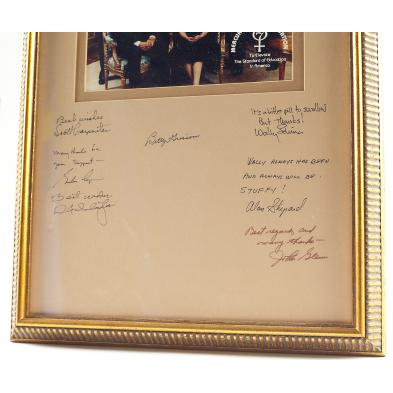 To Elevate
The Standard of Education
In America
Best wishes
Scott Carpenter
Many thanks for
your support —
Best wishes
Betty Grissom
It's a bitter pill to swallow
But Thanks!
Wally Schirra
WALLY ALWAYS HAS BEEN
AND ALWAYS WILL BE
STUFFY!
Alan Shepard
Best regards, and
many thanks —
John Glenn